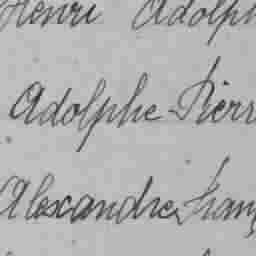 Henri Adolph
Adolphe Pierr
Alexandre Fran